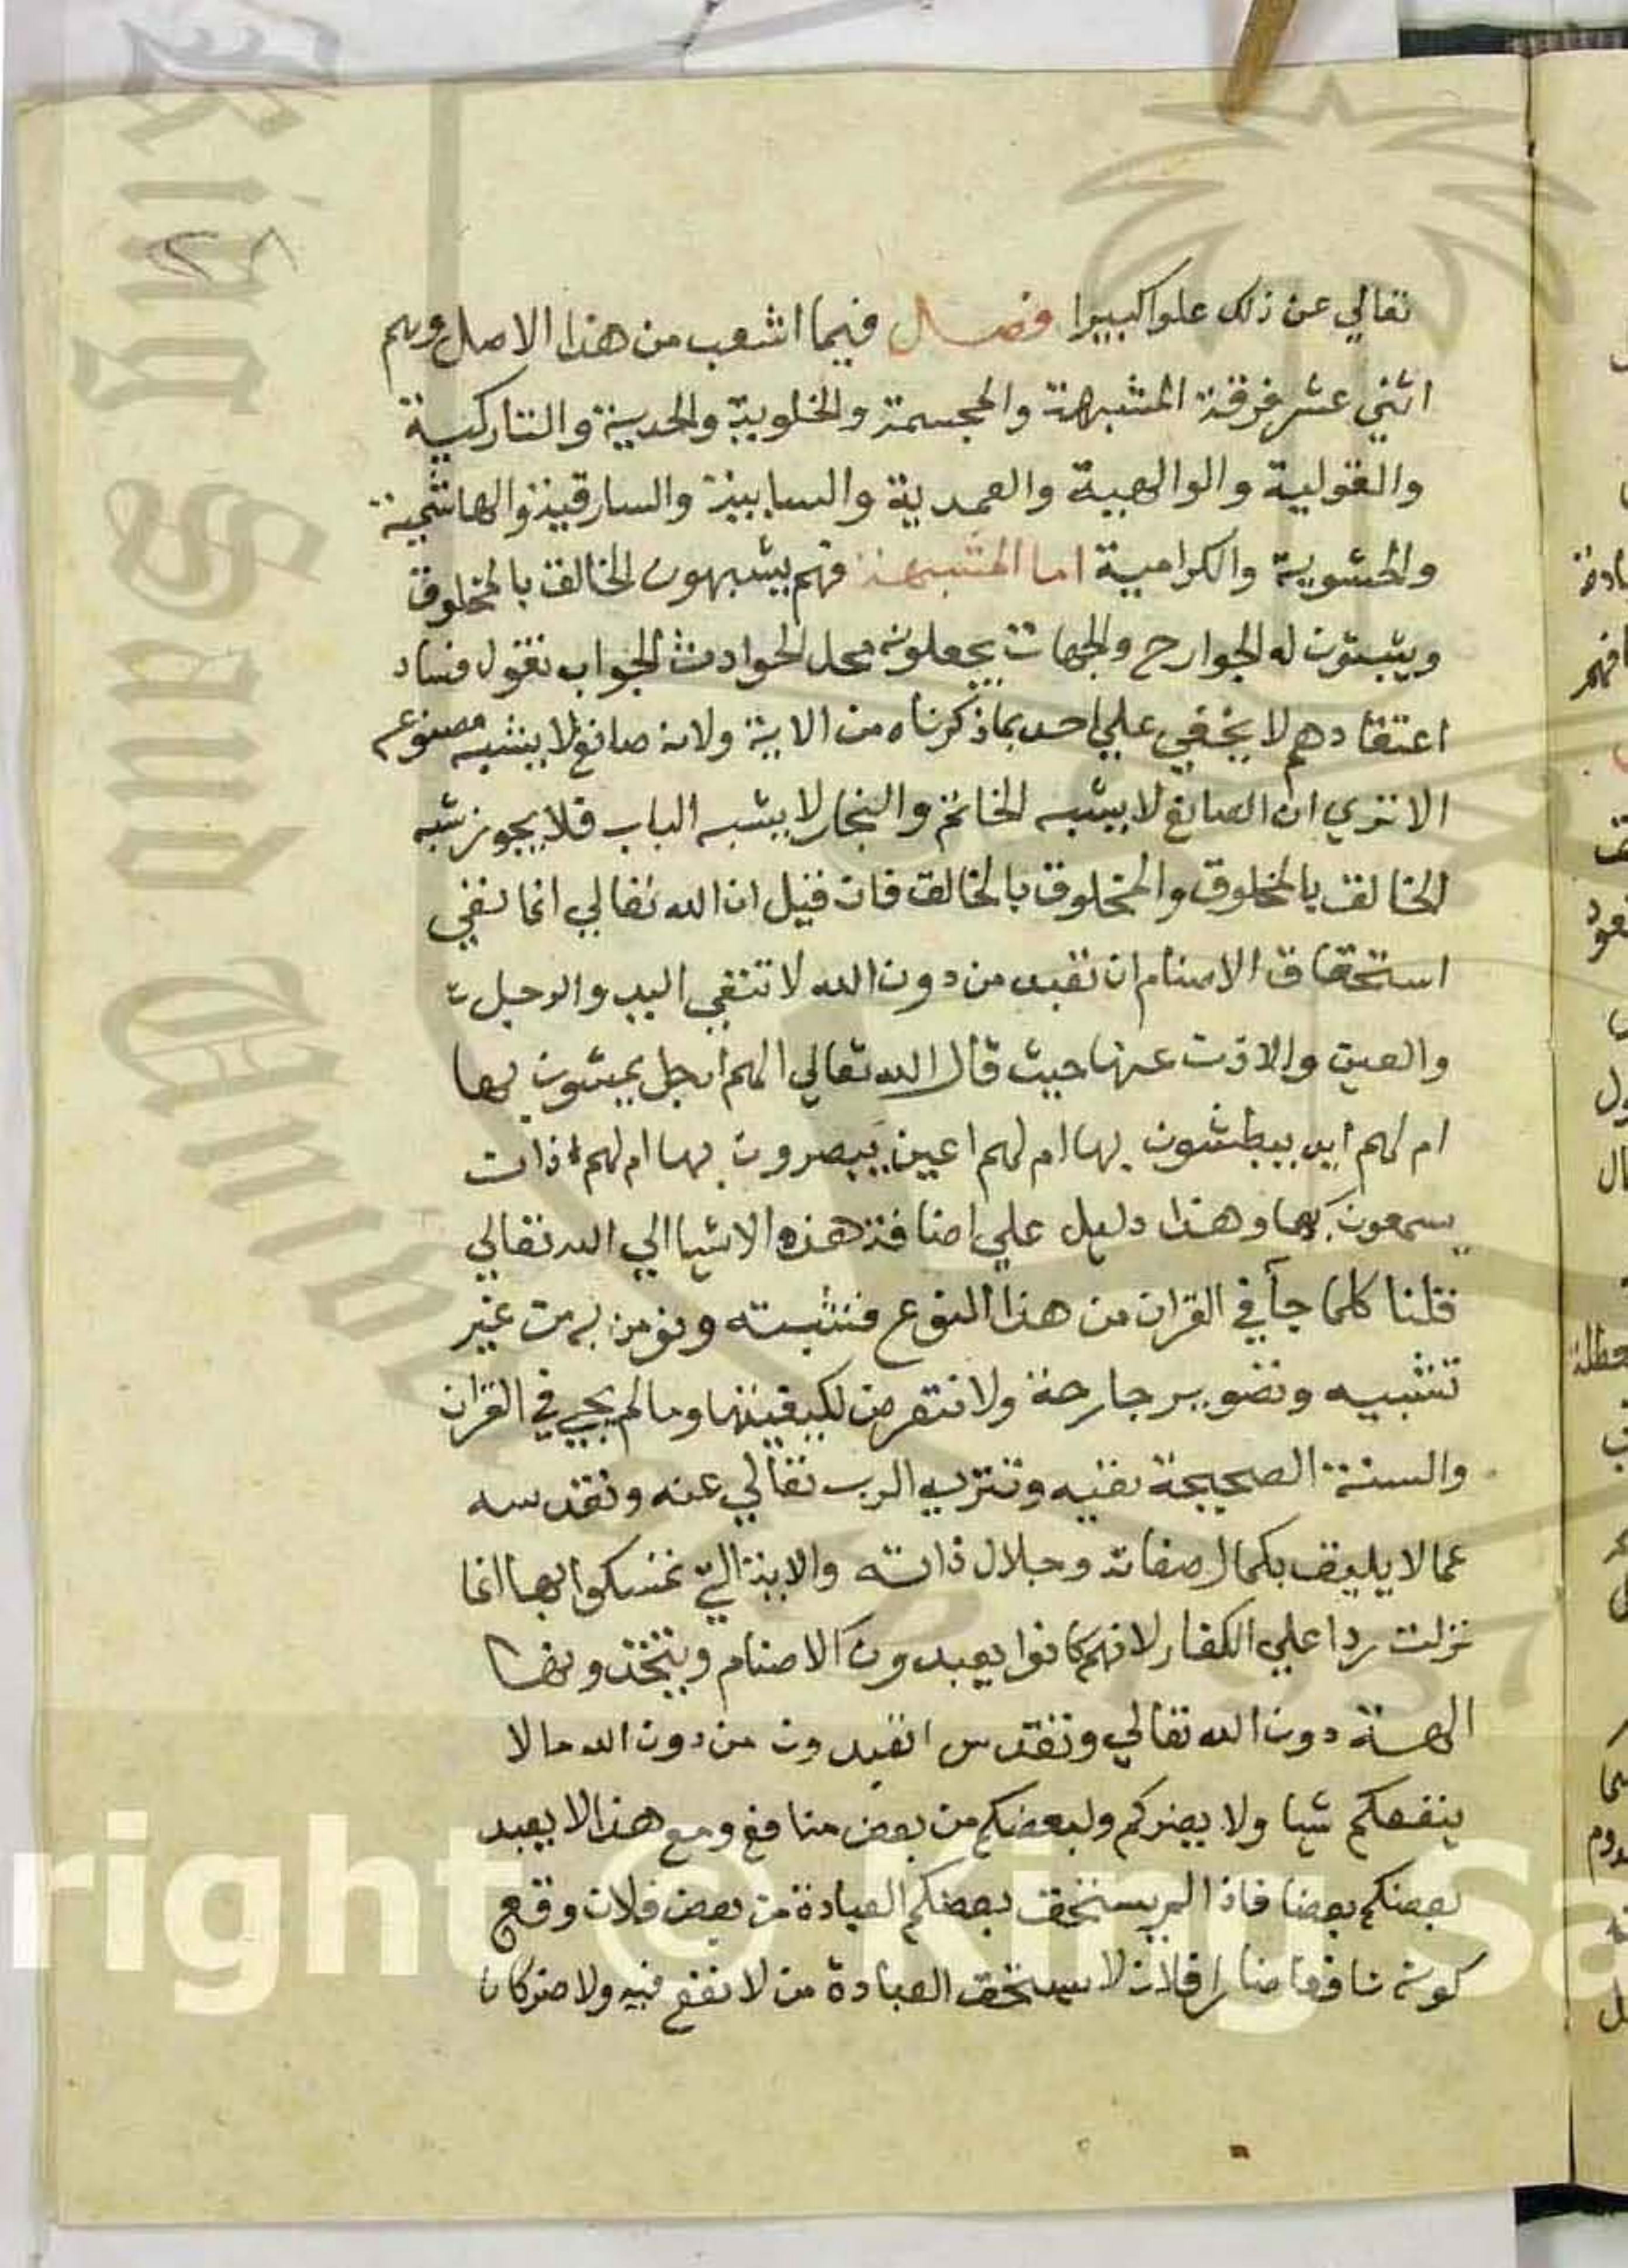 تعالي عن ذلك علوا كبيرا فصل فيما اشعب من هذا الاصل وهم
اثني عشر فرقة المشبهة والمجسمة والخلويية والحدية والتاركية
والقولية والوالهية والعمدية والسابية والسارقية والهاشمية
والحشوية والكرامية اما المشبهة فهم يشبهون الخالق بالمخلوق
ويثبتون له الجوارح والجهات يجعلونه محل الحوادث الجواب نقول فساد
اعتقادهم لا يخفي علي احد بما ذكرناه من الاية ولانه صانع لا يشبه مصنوعه
الا تري ان الصانع لا يشبه الخاتم والنجار لا يشبه الباب فلا يجوز شبه
الخالق بالمخلوق والمخلوق بالخالق فان قيل ان الله تعالي انما نفي
استحقاق الاصنام ان تعبد من دون الله لا تنتفي اليد والرجل
والعين والاذن عنها حيث قال الله تعالي الهم ارجل يمشون بها
ام لهم ايد يبطشون بها ام لهم اعين يبصرون بها ام لهم اذان
يسمعون بها وهذا دليل علي اضافة هذه الاشيا الي الله تعالي
قلنا كلما جآ في القران من هذا النوع فنثبته ونومن به من غير
تشبيه وتصوير جارحة ولا نتعرض لكيفيتها وما لم يجي في القران
والسنة الصحيحة نفيه وتنزيه الرب تعالي عنه ونقدسه
عما لا يليق بكمال صفاته وجلال ذاته والاية التي تمسكوا بها انما
نزلت ردا علي الكفار لانهم كانوا يعبدون الاصنام ويتخذونها
الهة دون الله تعالي وتقدس اتعبدون من دون الله ما لا
ينفعكم شيا ولا يضركم ولبعضكم من بعض منافع ومع هذا لا يعبد
بعضكم بعضا فاذا لم يستحق بعضكم العبادة من بعض فلان وقع
كونه نافعا ضارا فلان لا يستحق العبادة من لا نفع فيه ولا ضر كان